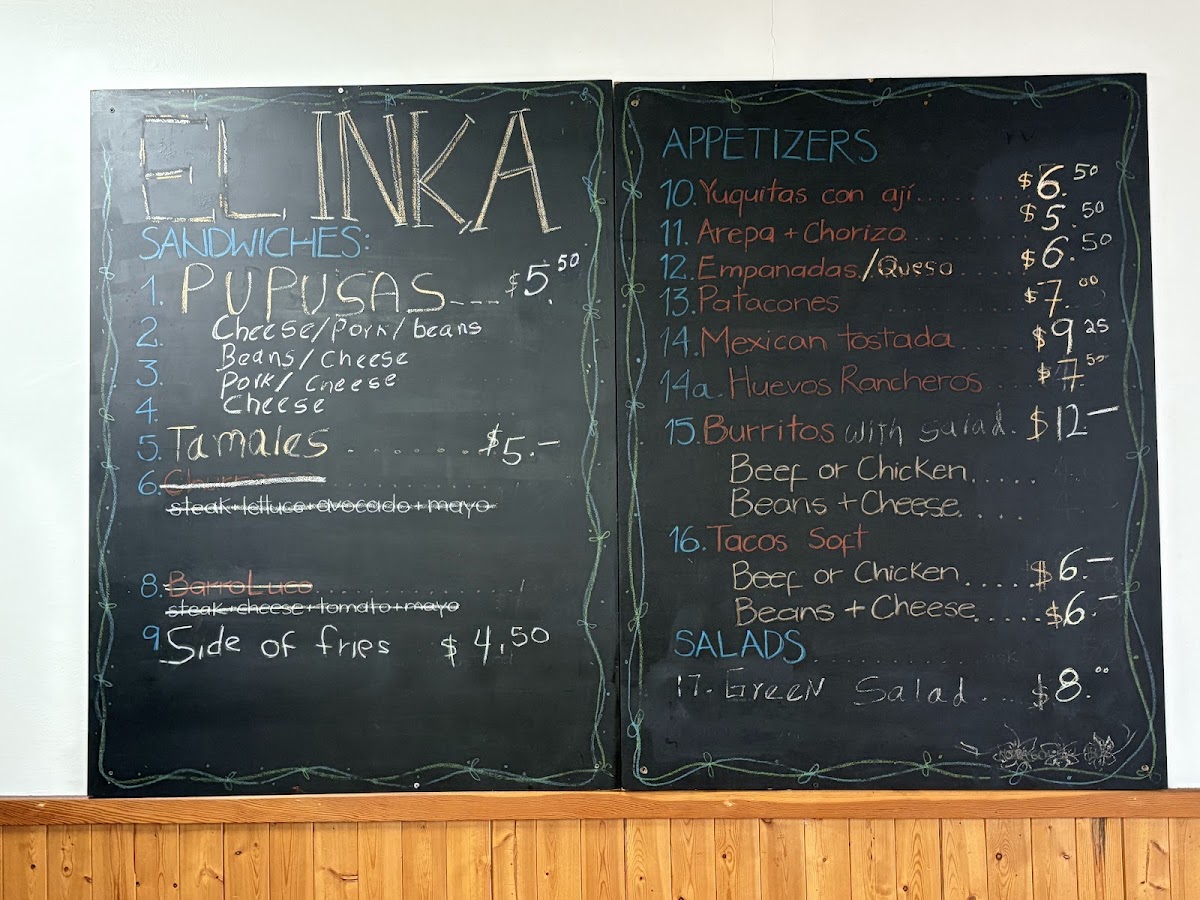 EL INKA
SANDWICHES:
1. PUPUSAS--- $5.50
2. Cheese/Pork/beans
3. Beans/Cheese
4. Pork/Cheese
Cheese
5. Tamales ....... $5.-
6.
steak+lettuce+avocado+mayo
8. BarroLuco
steak+cheese+tomato+mayo
9 Side of fries $4.50
APPETIZERS
10. Yuquitas con ají ....... $6.50
11. Arepa + Chorizo ....... $5.50
12. Empanadas/Queso ..... $6.50
13. Patacones $7.00
14. Mexican tostada ..... $9.25
14a. Huevos Rancheros .. $7.50
15. Burritos with salad. $12-
Beef or Chicken.....
Beans + Cheese....
16. Tacos Soft
Beef or Chicken..... $6.-
Beans + Cheese..... $6.-
SALADS
17. Green Salad ... $8.00